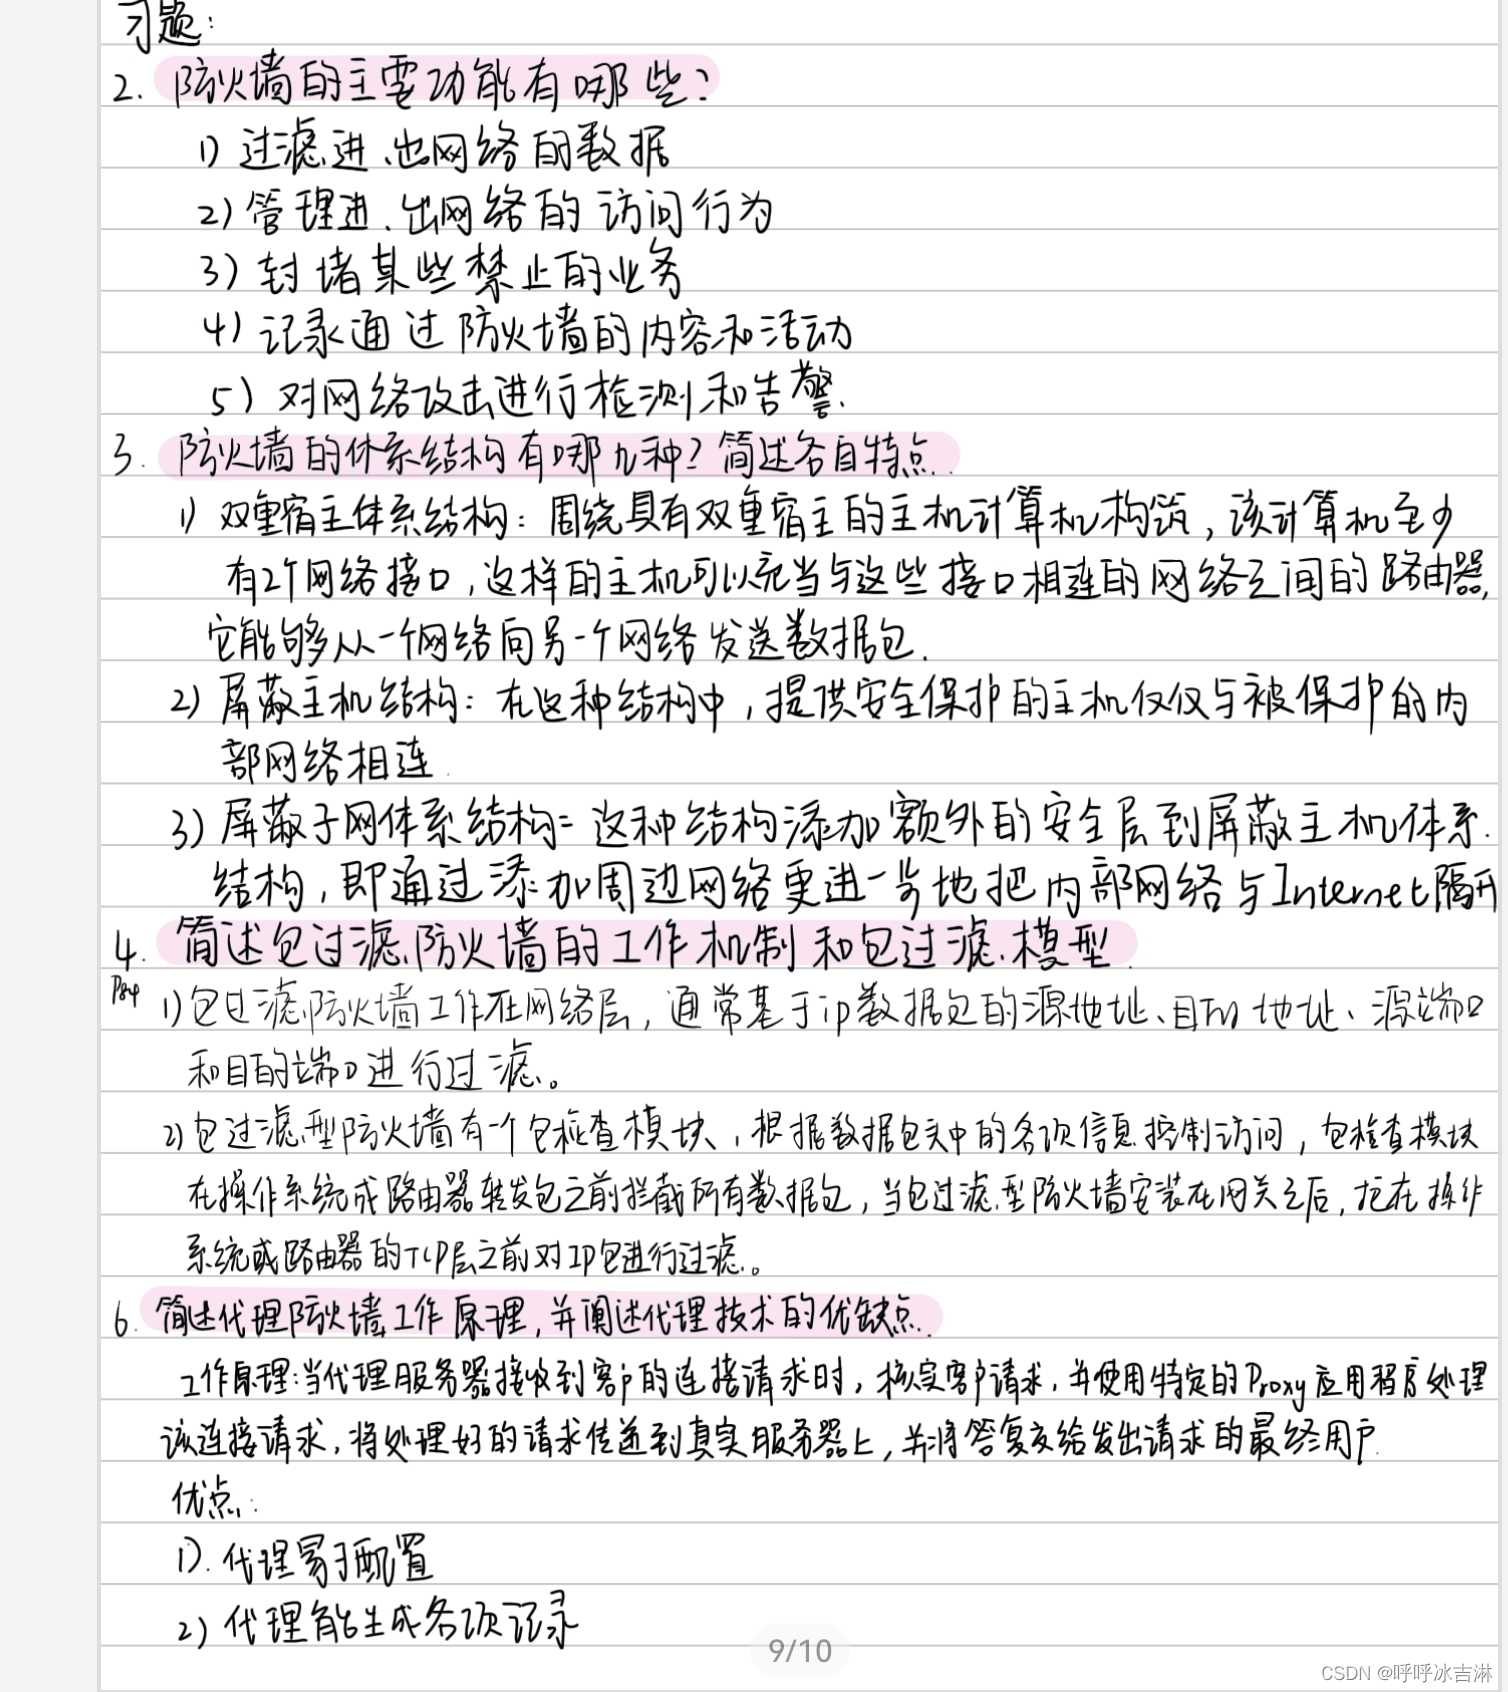 习题:
2. 防火墙的主要功能有哪些?
1) 过滤进、出网络的数据
2) 管理进、出网络的访问行为
3) 封堵某些禁止的业务
4) 记录通过防火墙的内容和活动
5) 对网络攻击进行检测和告警.
3. 防火墙的体系结构有哪几种?简述各自特点.
1) 双重宿主体系结构:围绕具有双重宿主的主机计算机构筑,该计算机至少
有2个网络接口,这样的主机可以充当与这些接口相连的网络之间的路由器,
它能够从一个网络向另一个网络发送数据包.
2) 屏蔽主机结构:在这种结构中,提供安全保护的主机仅仅与被保护的内
部网络相连.
3) 屏蔽子网体系结构=这种结构添加额外的安全层到屏蔽主机体系.
结构,即通过添加周边网络更进一步地把内部网络与Internet隔开
4. 简述包过滤防火墙的工作机制和包过滤模型.
P84
1) 包过滤防火墙工作在网络层,通常基于ip数据包的源地址、目的地址、源端口
和目的端口进行过滤。
2) 包过滤型防火墙有一个包检查模块,根据数据包头中的各项信息控制访问,包检查模块
在操作系统或路由器转发包之前拦截所有数据包,当包过滤型防火墙安装在网关之后,抢在操作
系统或路由器的TCP层之前对IP包进行过滤。
6. 简述代理防火墙工作原理,并阐述代理技术的优缺点.
工作原理:当代理服务器接收到客户的连接请求时,核实客户请求,并使用特定的Proxy应用程序处理
该连接请求,将处理好的请求传递到真实服务器上,并将答复交给发出请求的最终用户.
优点:
1). 代理易于配置
2) 代理能生成各项记录
9/10
CSDN @呼呼冰吉淋